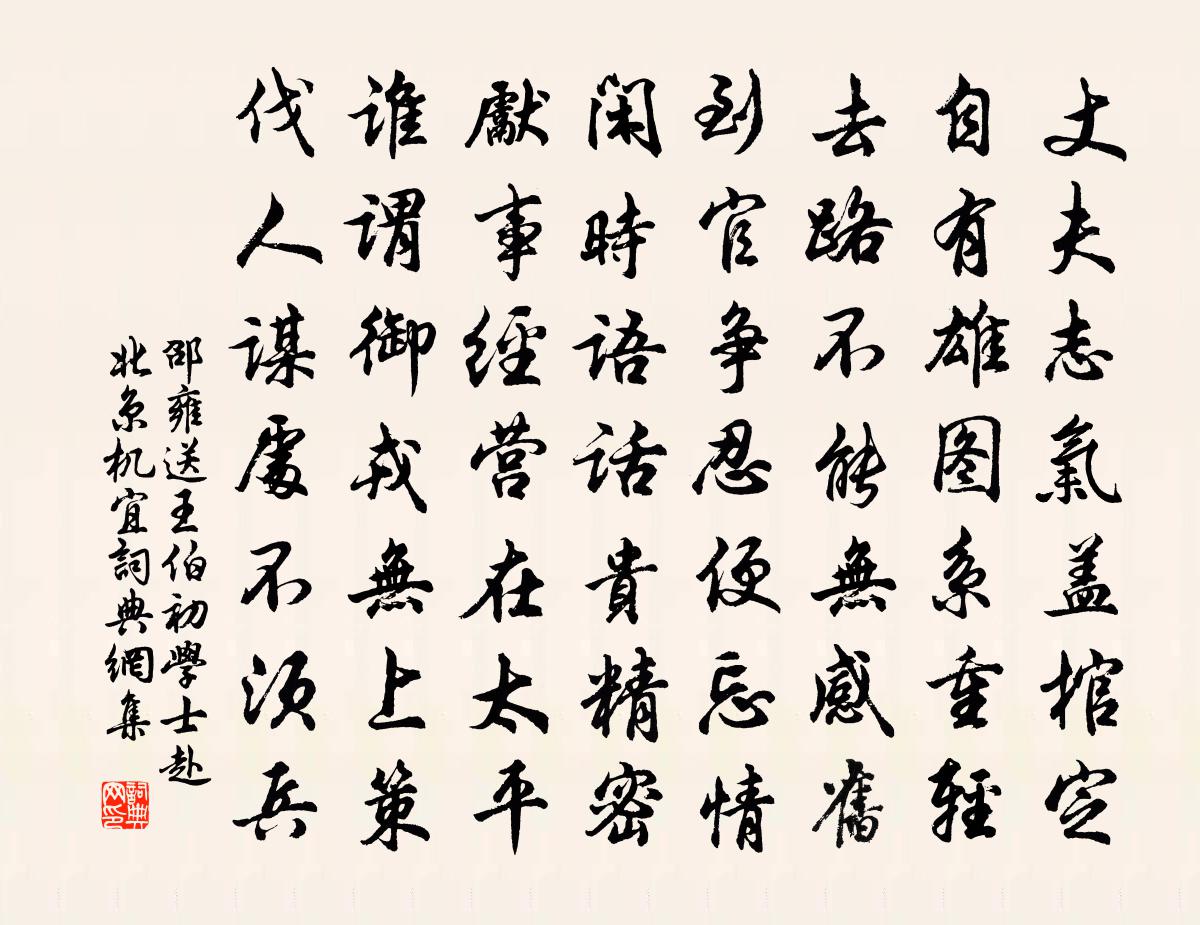 丈夫志氣盖棺定
自有雄图系重輕
去路不能無感舊
到官争忍便忘情
閑時語話貴精密
獻事經营在太平
誰謂御戎無上策
伐人謀處不须兵
邵雍送王伯初學士赴
北京机宜詞典網集
詞典网印